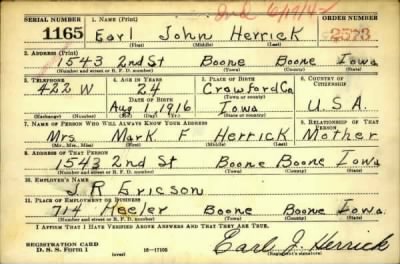 2nd 6/19/42
SERIAL NUMBER 1. NAME (Print) ORDER NUMBER
1165 Earl John Herrick 2573
(First) (Middle) (Last)
2. ADDRESS (Print)
1543 2nd St Boone Boone Iowa
(Number and street or R. F. D. number) (Town) (County) (State)
3. TELEPHONE 4. AGE IN YEARS 5. PLACE OF BIRTH 6. COUNTRY OF CITIZENSHIP
422 W 24 Crawford Co
DATE OF BIRTH
Aug 1, 1916 Iowa U.S.A.
(Exchange) (No.) (Mo.) (Day) (Yr.) (State or country)
7. NAME OF PERSON WHO WILL ALWAYS KNOW YOUR ADDRESS 8. RELATIONSHIP OF THAT PERSON
Mrs Mark F Herrick Mother
(Mr., Mrs., Miss) (First) (Middle) (Last)
9. ADDRESS OF THAT PERSON
1543 2nd St Boone Boone Iowa
(Number and street or R. F. D. number) (Town) (County) (State)
10. EMPLOYER'S NAME
J. R Ericson
11. PLACE OF EMPLOYMENT OR BUSINESS
714 Keeler Boone Boone Iowa
(Number and street or R. F. D. number) (Town) (County) (State)
I AFFIRM THAT I HAVE VERIFIED ABOVE ANSWERS AND THAT THEY ARE TRUE.
REGISTRATION CARD
D. S. S. Form 1 16-17105 Earl J. Herrick
(over)